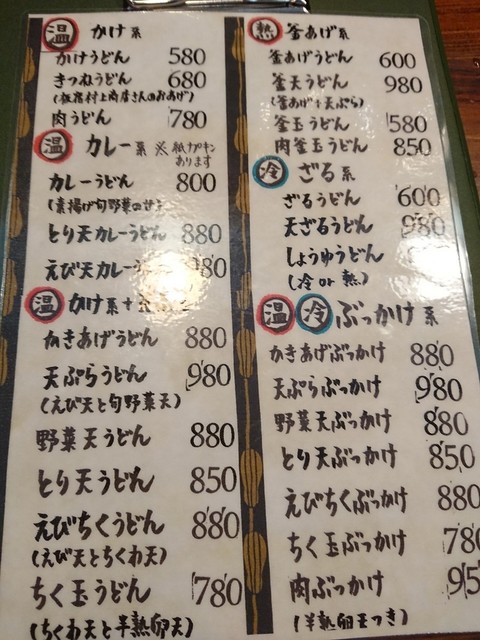 温 かけ系
かけうどん 580
きつねうどん 680
肉うどん 780
温 カレー系 ※紙ナプキン
あります
カレーうどん 800
とり天カレーうどん 880
えび天カレー
温 かけ系+
かきあげうどん 880
天ぷらうどん 980
(えび天と旬野菜天)
野菜天うどん 880
とり天うどん 850
えびちくうどん 880
(えび天とちくわ天)
ちく玉うどん 780
(ちくわ天と半熟卵天)
熱 釜あげ系
釜あげうどん 600
釜天うどん 980
(釜あげ+天ぷら)
釜玉うどん 580
肉釜玉うどん 850
冷 ざる系
ざるうどん 600
天ざるうどん 980
しょうゆうどん
(冷 or 熱)
温 冷 ぶっかけ系
かきあげぶっかけ 880
天ぷらぶっかけ 980
野菜天ぶっかけ 880
とり天ぶっかけ 850
えびちくぶっかけ 880
ちく玉ぶっかけ 780
肉ぶっかけ
(半熟卵天つき)